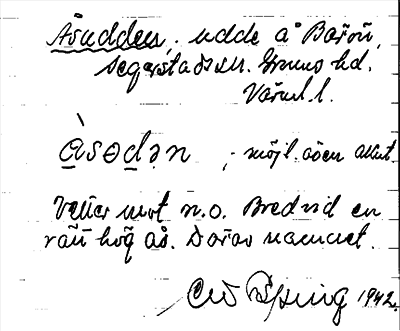 Åsudden, udde å Barön,
Segerstads sn. Grums hd.
Värml. l.
àsɵdən, möjl. även akut.
Vetter mot n.o. Bredvid en
rätt hög ås. Därav namnet.
1942.